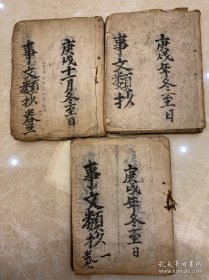 庚戌十一月冬至日
事文類抄卷三
庚戌年冬至日
事文類抄
庚戌年冬至日
事文類抄卷一
孔夫子旧书网